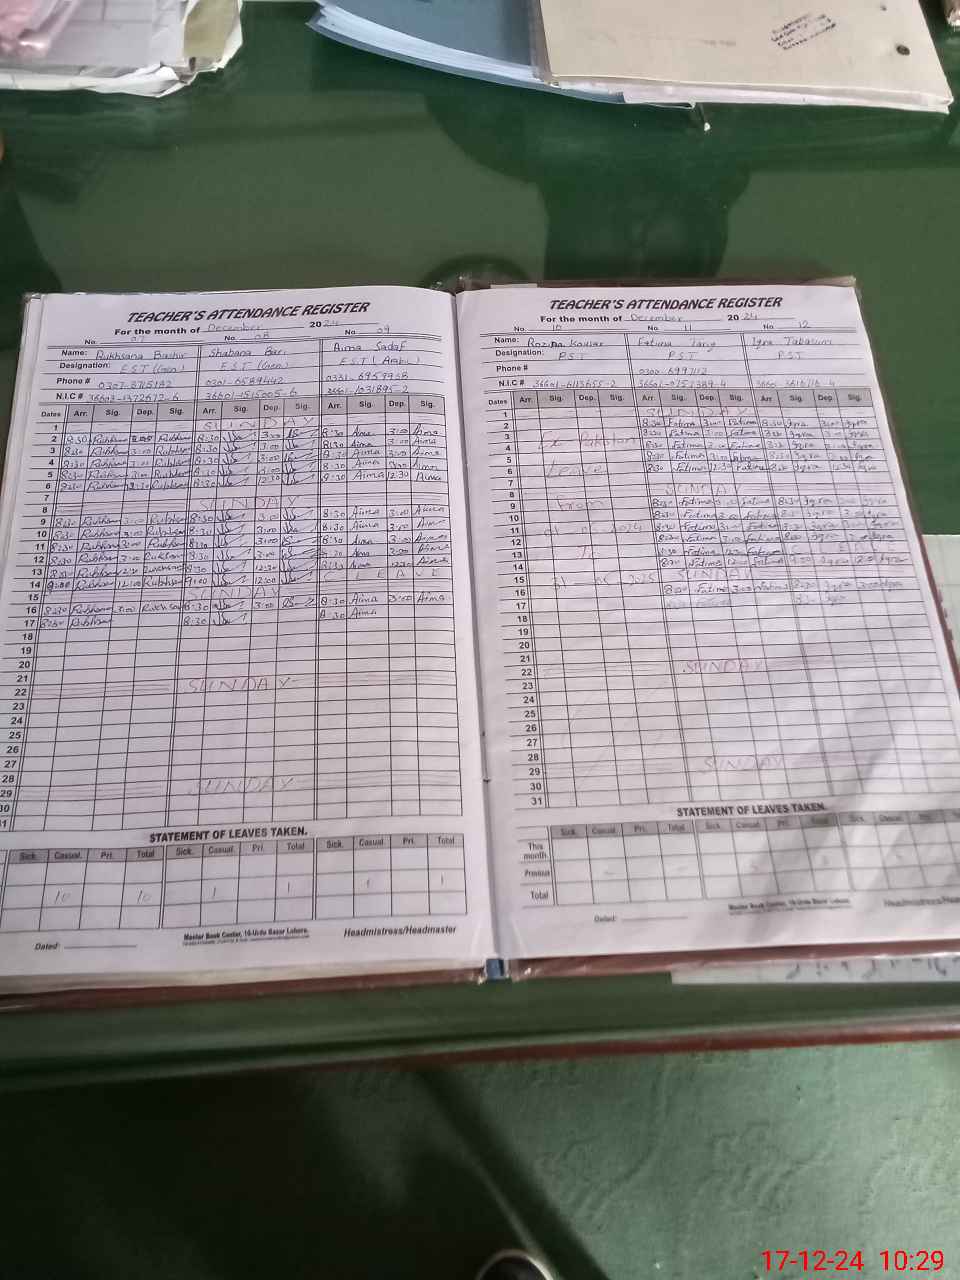 TEACHER'S ATTENDANCE REGISTER
For the month of December 2024
No 07 No 08 No 09
Name: Rukhsana Bashir Shabana Bari Aima Sadaf
Designation: EST (Gen) EST (Gen) EST (Arabic)
Phone # 0301-6589442
N.I.C #
Dates Arr. Sig. Dep. Sig. Arr. Sig. Dep. Sig. Arr. Sig. Dep. Sig.
1 SUNDAY
2 8:30 Rukhsana 3:00 Rukhsana 8:30 3:00 8:30 Aima 3:00 Aima
3 8:30 Rukhsana 3:00 Rukhsana 8:30 3:00 8:30 Aima 3:00 Aima
4 8:30 Rukhsana 3:00 Rukhsana 8:30 3:00 8:30 Aima 3:00 Aima
5 8:30 Rukhsana 3:00 Rukhsana 8:30 3:00 8:30 Aima 3:00 Aima
6 8:30 Rukhsana 12:30 Rukhsana 8:30 12:30 8:30 Aima 12:30 Aima
7
8 SUNDAY
9 8:30 Rukhsana 3:00 Rukhsana 8:30 3:00 8:30 Aima 3:00 Aima
10 8:30 Rukhsana 3:00 Rukhsana 8:30 3:00 8:30 Aima 3:00 Aima
11 8:30 Rukhsana 3:00 Rukhsana 8:30 3:00 8:30 Aima 3:00 Aima
12 8:30 Rukhsana 3:00 Rukhsana 8:30 3:00 8:30 Aima 3:00 Aima
13 8:30 Rukhsana 12:30 Rukhsana 8:30 12:30 8:30 Aima 12:30 Aima
14 9:00 Rukhsana 12:00 Rukhsana 9:00 12:00 C LEAVE
15 SUNDAY
16 8:30 Rukhsana 3:00 Rukhsana 8:30 3:00 8:30 Aima 3:00 Aima
17 8:30 Rukhsana 8:30 8:30 Aima
18
19
20
21
22 SUNDAY
23
24
25
26
27
28
29 SUNDAY
30
31
STATEMENT OF LEAVES TAKEN.
Sick. Casual. Pri. Total Sick. Casual. Pri. Total Sick. Casual. Pri. Total
10 10 1 1 1 1
Master Book Center, 16-Urdu Bazar Lahore.
Dated: Headmistress/Headmaster
TEACHER'S ATTENDANCE REGISTER
For the month of December 2024
No 10 No 11 No 12
Name: Rozina Kousar Fatima Tariq Iqra Tabasum
Designation: P.S.T P.S.T P.S.T
Phone #
N.I.C # 36601-6113655-2 36601-0757389-4
Dates Arr. Sig. Dep. Sig. Arr. Sig. Dep. Sig. Arr. Sig. Dep. Sig.
1 SUNDAY
2 8:30 Fatima 3:00 Fatima 8:30 Iqra 3:00 Iqra
3 Ex Pakistan 8:30 Fatima 3:00 Fatima 8:30 Iqra 3:00 Iqra
4 8:30 Fatima 3:00 Fatima 8:30 Iqra 3:00 Iqra
5 Leave 8:30 Fatima 3:00 Fatima 8:30 Iqra 3:00 Iqra
6 8:30 Fatima 12:30 Fatima 8:30 Iqra 12:30 Iqra
7
8 From SUNDAY
9 8:30 Fatima 3:00 Fatima 8:30 Iqra 3:00 Iqra
10 8:30 Fatima 3:00 Fatima 8:30 Iqra 3:00 Iqra
11 8:30 Fatima 3:00 Fatima 8:30 Iqra 3:00 Iqra
12 To 8:30 Fatima 3:00 Fatima 8:30 Iqra
13 8:30 Fatima 12:30 Fatima
14 Fatima 12:00 Fatima 9:00 Iqra 12:00 Iqra
15 SUNDAY
16 8:30 Fatima 3:00 Fatima 8:30 Iqra 3:00 Iqra
17 8:30 Fatima 8:30 Iqra
18
19
20
21
22 SUNDAY
23
24
25
26
27
28
29 SUNDAY
30
31
STATEMENT OF LEAVES TAKEN.
Sick. Casual. Pri. Total Sick. Casual. Pri. Total Sick. Casual.
This month
Previous
Total
Master Book Center, 16-Urdu Bazar Lahore.
Dated: Headmistress/
17-12-24 10:29